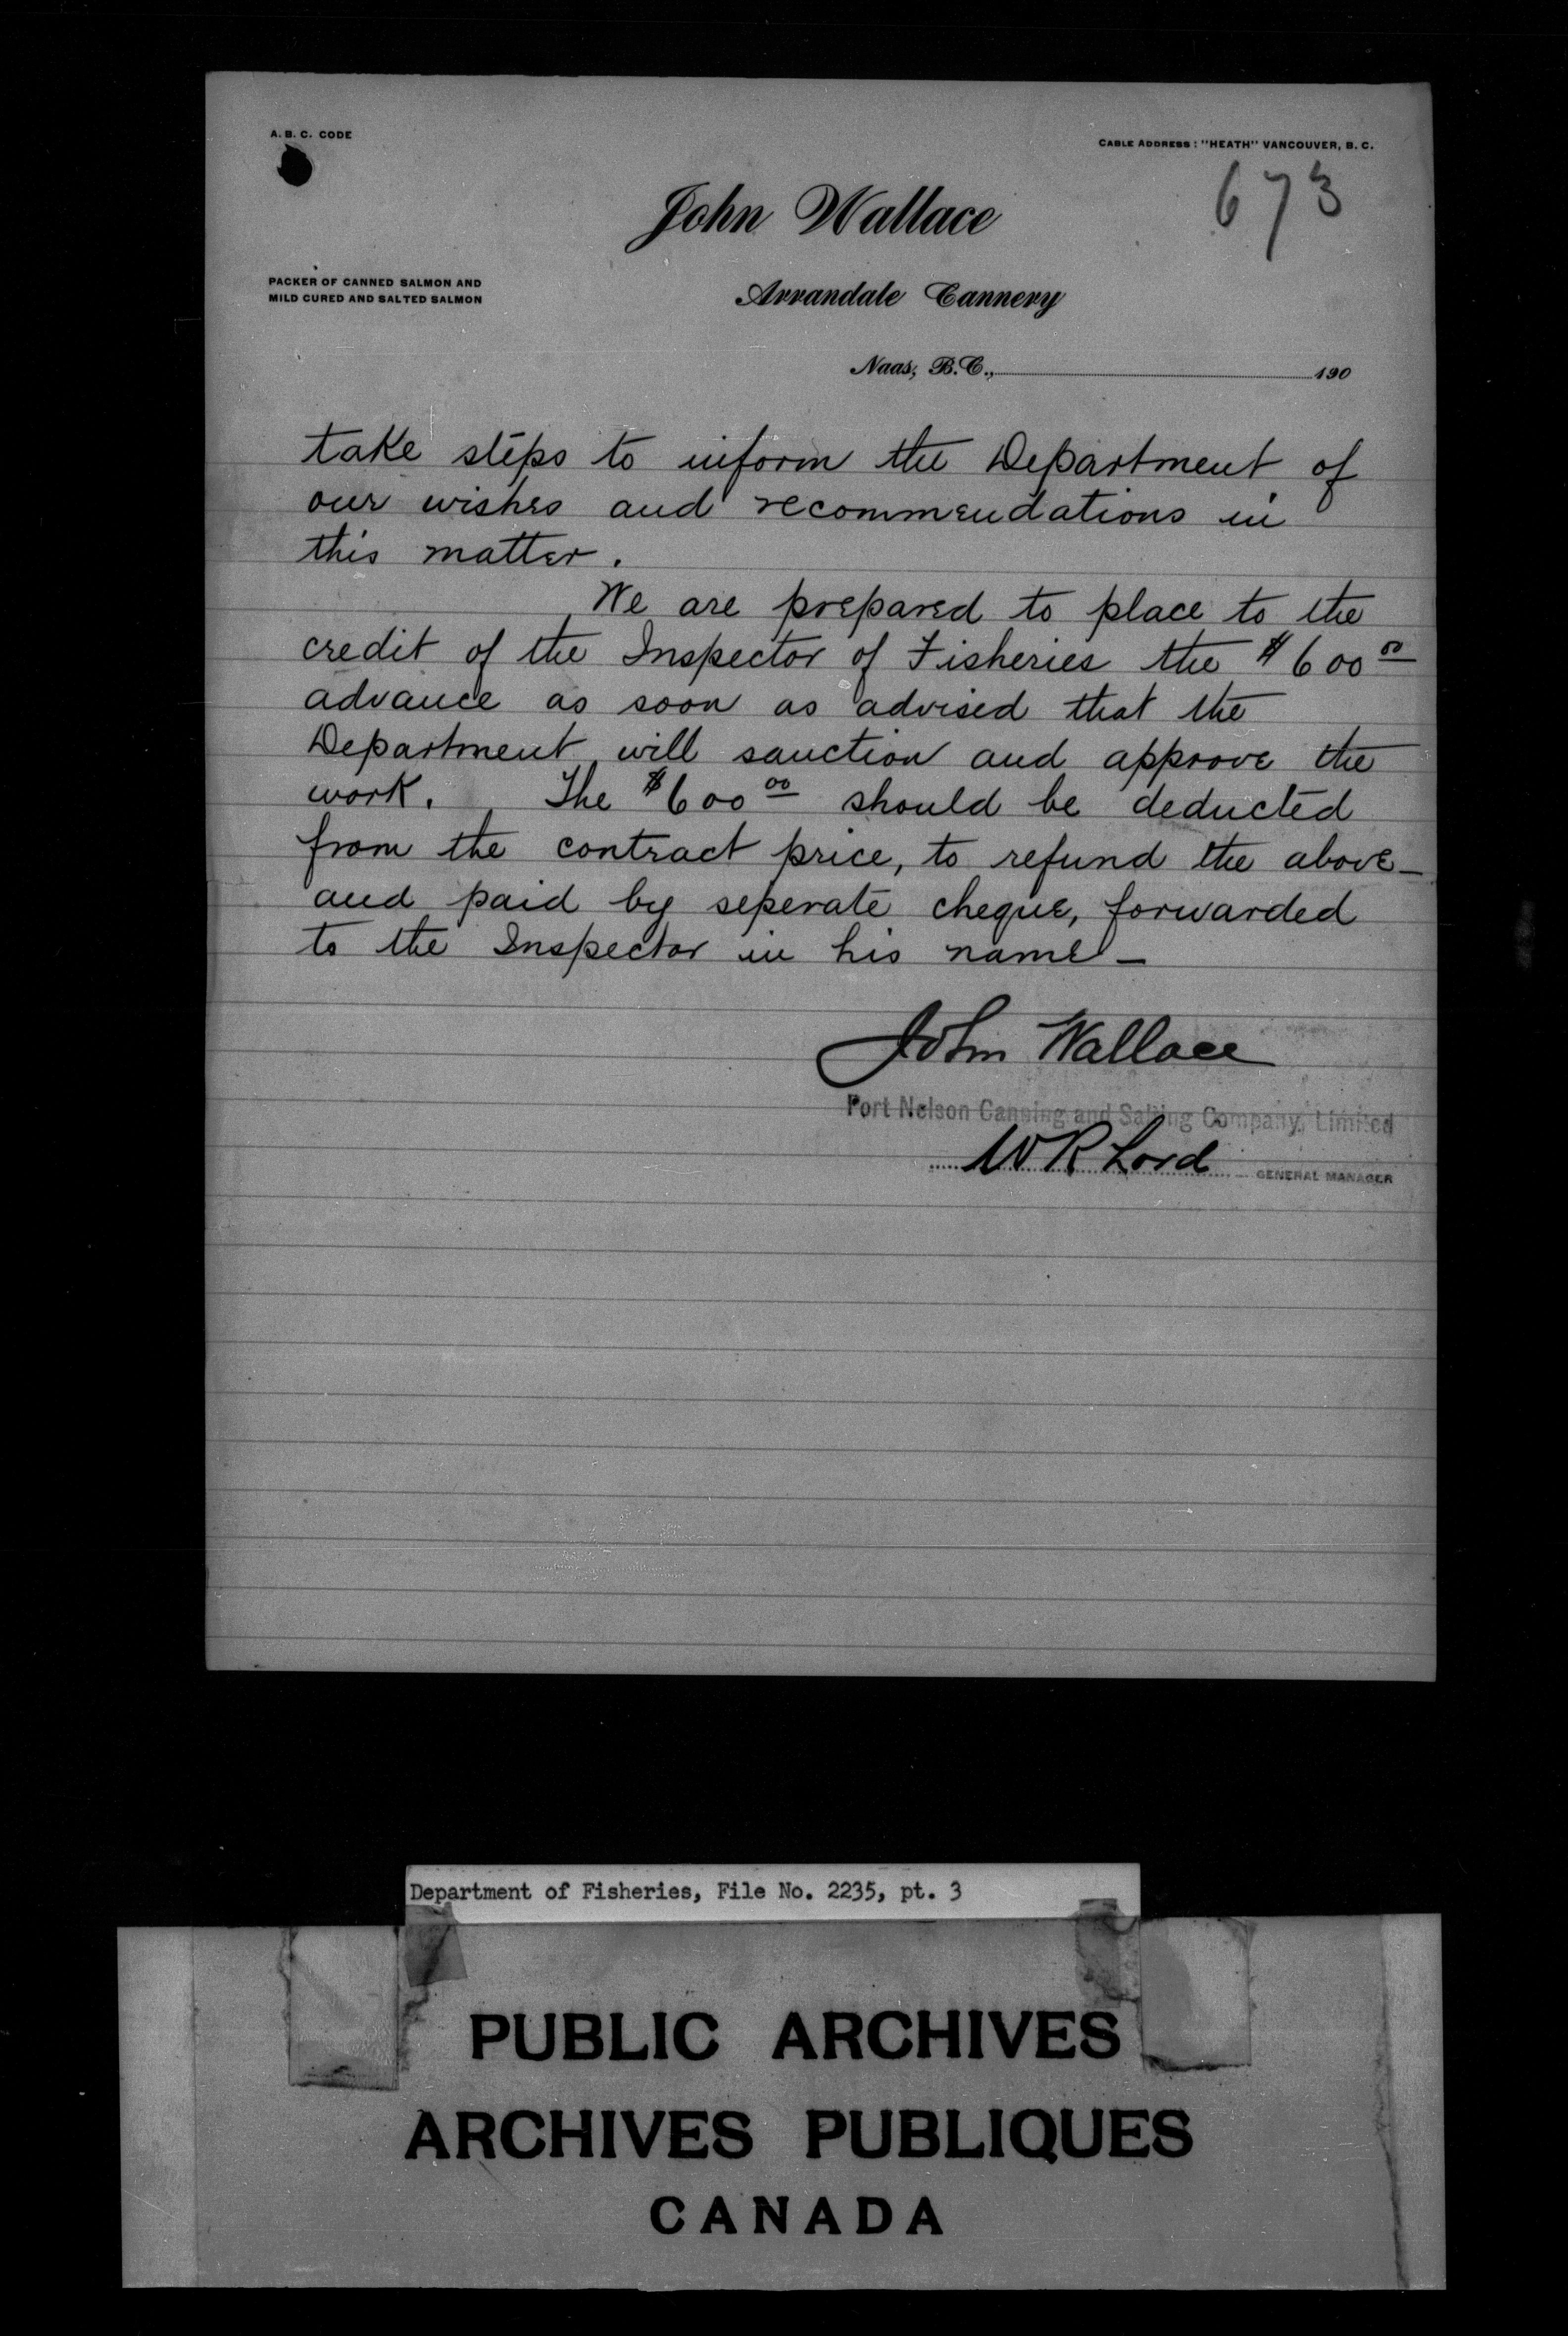 A. B. C. CODE
CABLE ADDRESS: "HEATH" VANCOUVER, B. C.
673
John Wallace
PACKER OF CANNED SALMON AND
MILD CURED AND SALTED SALMON
Arrandale Cannery
Naas, B.C., 190
take steps to inform the Department of
our wishes and recommendations in
this matter.
We are prepared to place to the
credit of the Inspector of Fisheries the $600 00
advance as soon as advised that the
Department will sanction and approve the
work. The $600 00 should be deducted
from the contract price, to refund the above –
and paid by seperate cheque, forwarded
to the Inspector in his name –
John Wallace
Port Nelson Canning and Salting Company, Limited
W R Lord GENERAL MANAGER
Department of Fisheries, File No. 2235, pt. 3
PUBLIC ARCHIVES
ARCHIVES PUBLIQUES
CANADA